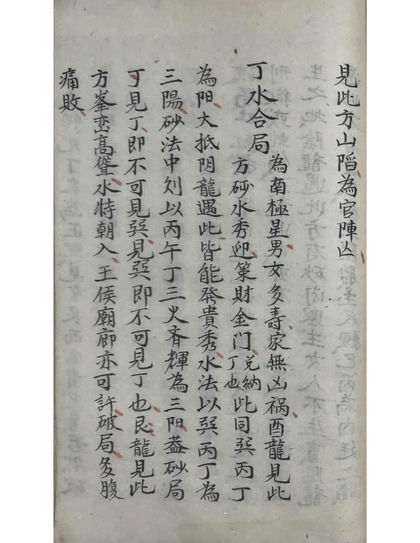 見此方山陷為官陣凶
丁水合局
為南極星男女多壽家無凶禍酉龍見此
方砂水秀迎策財金門兌納丁也此同巽丙丁
為陽大抵阴龍遇此皆能發貴秀水法以巽丙丁為
三陽砂法中則以丙午丁三火齊輝為三阳蓋砂局
丁見丁即不可見巽見巽即不可見丁也艮龍見此
方峯巒高聳水特朝入王侯廟廊亦可許破局多腹
痛敗